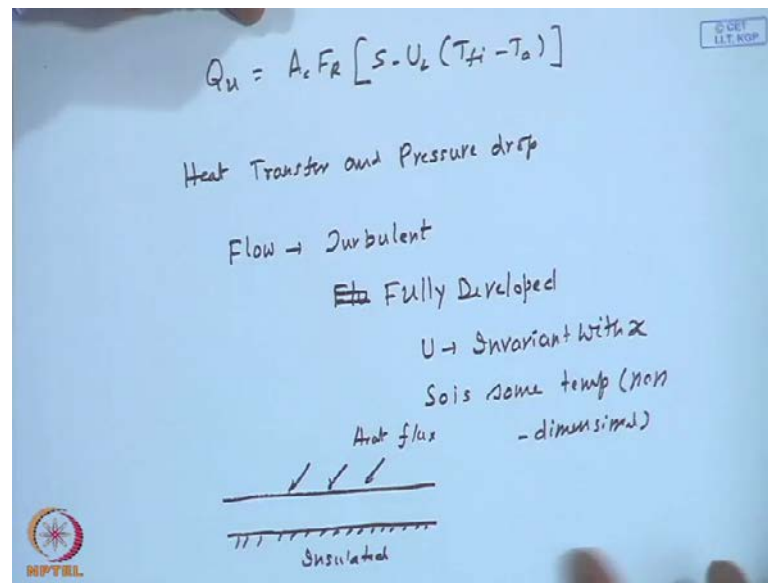 © CET
I.I.T. KGP
Qu = Ac FR [S - UL (Tfi - Ta)]
Heat Transfer and Pressure drop
Flow → Turbulent
Fully Developed
U → Invariant with x
So is some temp (non
- dimensional)
Heat flux
Insulated
NPTEL